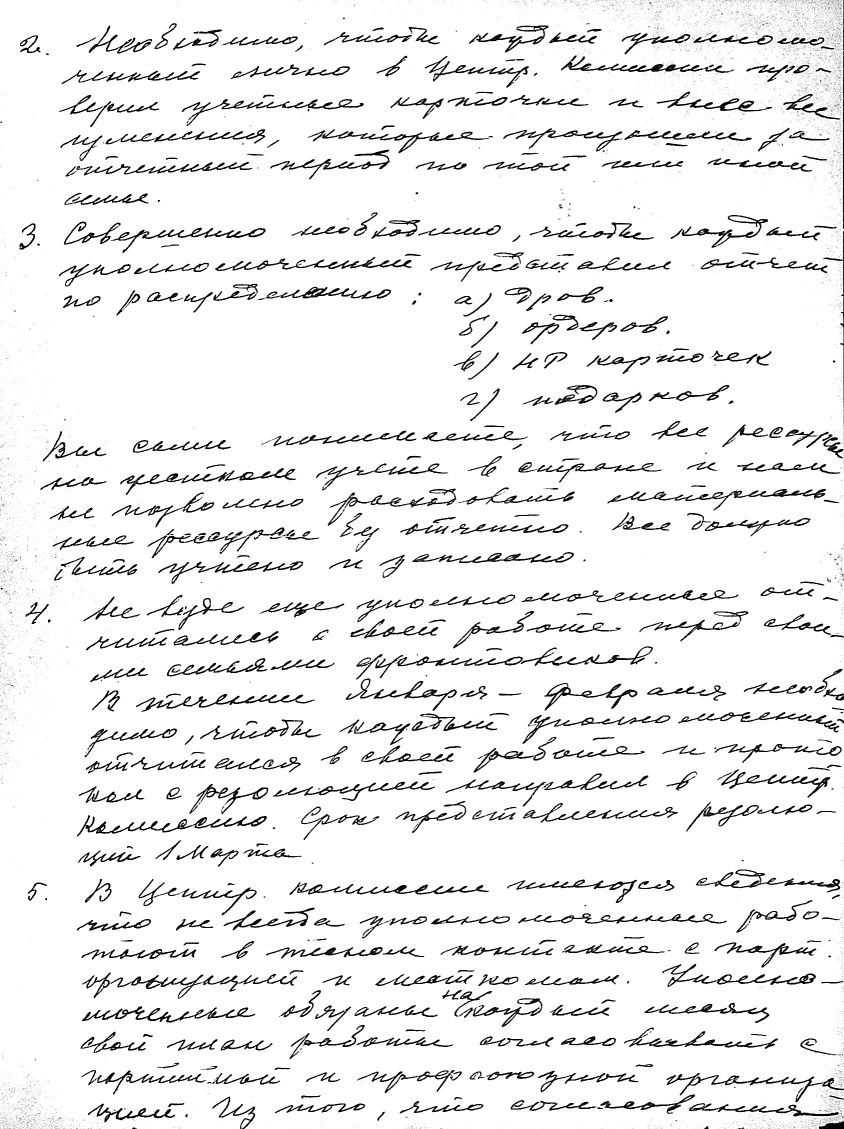 2. Необходимо, чтобы каждый уполномо-
ченный лично в Центр. Комиссии про-
верил учетные карточки и внес все
изменения, которые произошли за
отчетный период по той или иной
семье.
3. Совершенно необходимо, чтобы каждый
уполномоченный представил отчет
по распределению: а) дров.
б) ордеров.
в) НР карточек
г) подарков.
Вы сами понимаете, что все рессурсы
на жестком учете в стране и нам
не позволено расходовать материаль-
ные рессурсы безотчетно. Все должно
быть учтено и записано.
4. Не везде еще уполномоченные от-
читались о своей работе перед свои-
ми семьями фронтовиков.
В течении Января – февраля необхо
димо, чтобы каждый уполномоченный
отчитался в своей работе и прото
кол с резолюцией направил в Центр.
Комиссию. Срок представления резолю-
ции 1 Марта
5. В Центр. комиссии имеются сведения,
что не всегда уполномоченные рабо-
тают в тесном контакте с парт.
организацией и месткомом. Уполно-
моченные обязаны на каждый месяц
свой план работы согласовывать с
партийной и профсоюзной организа
цией. Из того, что согласования